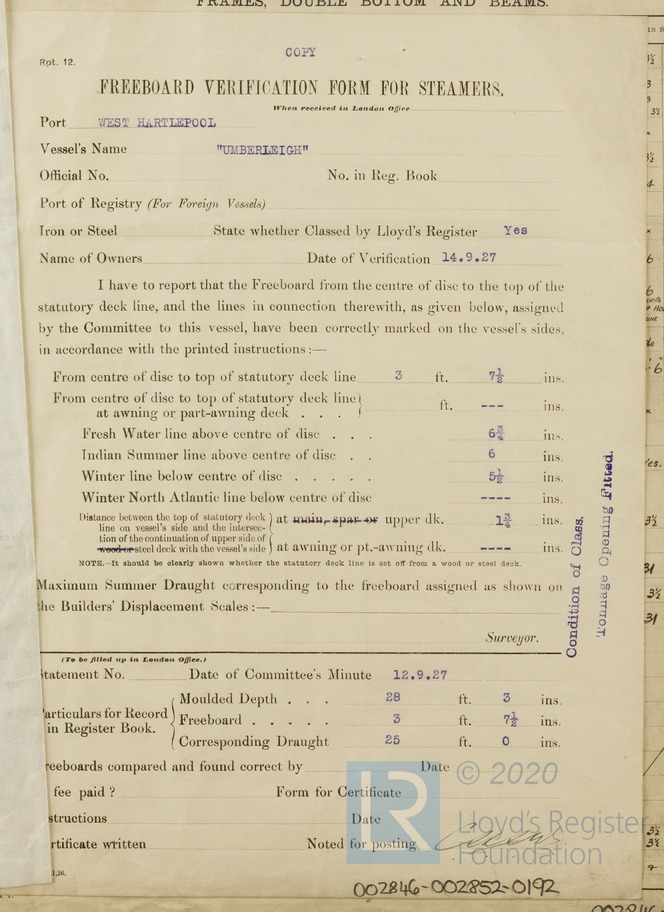 FRAMES, DOUBLE BOTTOM AND BEAMS.
COPY
Rpt. 12.
FREEBOARD VERIFICATION FORM FOR STEAMERS.
When received in London Office
Port WEST HARTLEPOOL
Vessel's Name "UMBERLEIGH"
Official No. No. in Reg. Book
Port of Registry (For Foreign Vessels)
Iron or Steel State whether Classed by Lloyd's Register Yes
Name of Owners Date of Verification 14.9.27
I have to report that the Freeboard from the centre of disc to the top of the
statutory deck line, and the lines in connection therewith, as given below, assigned
by the Committee to this vessel, have been correctly marked on the vessel's sides,
in accordance with the printed instructions:—
From centre of disc to top of statutory deck line 3 ft. 7½ ins.
From centre of disc to top of statutory deck line
at awning or part-awning deck . . . ft. --- ins.
Fresh Water line above centre of disc . . . 6¾ ins.
Indian Summer line above centre of disc . . 6 ins.
Winter line below centre of disc . . . . . 5½ ins.
Winter North Atlantic line below centre of disc ---- ins.
Distance between the top of statutory deck
line on vessel's side and the intersec-
tion of the continuation of upper side of
wood or steel deck with the vessel's side
at main, spar or upper dk. 1¾ ins.
at awning or pt.-awning dk. ---- ins.
NOTE.—It should be clearly shown whether the statutory deck line is set off from a wood or steel deck.
Maximum Summer Draught corresponding to the freeboard assigned as shown on
the Builders' Displacement Scales:—
Surveyor.
Condition of Class.
Tonnage Opening Fitted.
(To be filled up in London Office.)
tatement No. Date of Committee's Minute 12.9.27
articulars for Record
in Register Book.
Moulded Depth . . . 28 ft. 3 ins.
Freeboard . . . . . 3 ft. 7½ ins.
Corresponding Draught 25 ft. 0 ins.
reeboards compared and found correct by Date
fee paid ? Form for Certificate
structions Date
rtificate written Noted for posting
,26.
© 2020
LR
Lloyd's Register
Foundation
002846-002852-0192